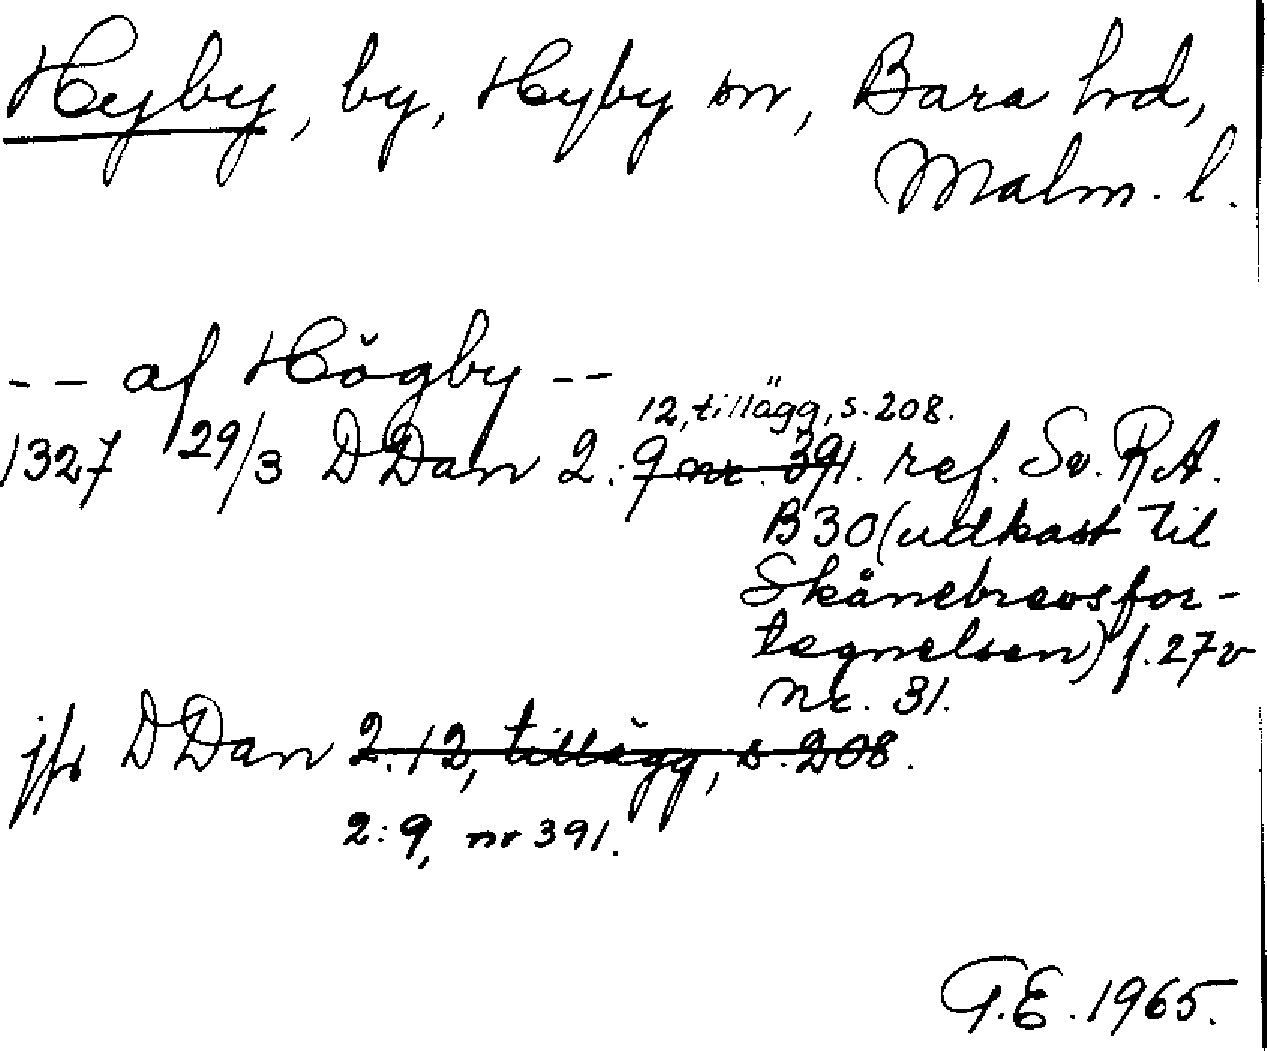 Hyby, by, Hyby sn, Bara hd,
Malm. l.
-- af Högby --
12, tillägg, s. 208.
1327 29/3 DDan 2:9 nr. 391. ref. Sv. R.A.
B 30 (udkast til
Skånebrevsfor-
tegnelsen) f. 27v
nr. 31.
jfr DDan 2:12, tillägg, s. 208.
2:9, nr 391.
G.E. 1965.